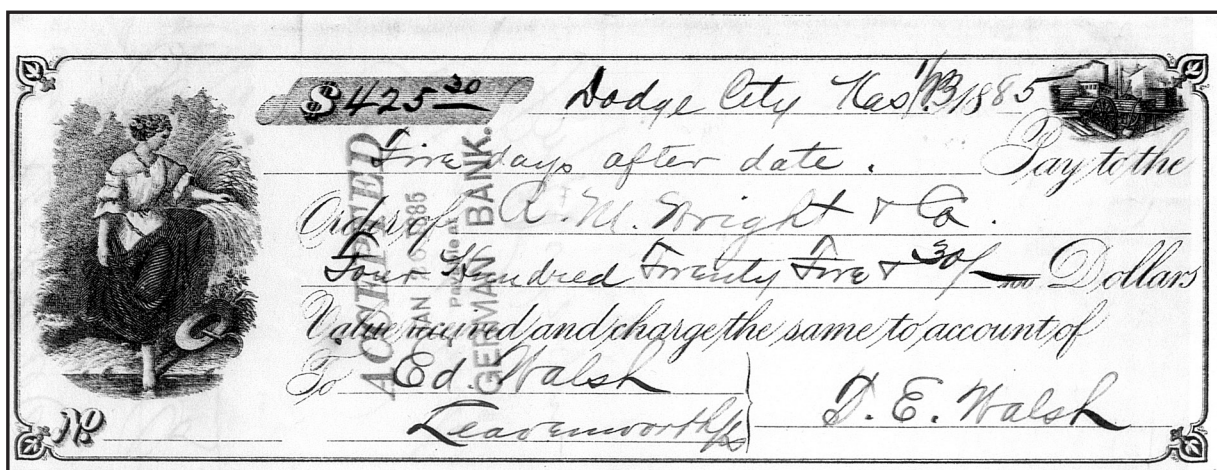 $425 30 Dodge City Kas 1/13 1885
Five days after date. Pay to the
Order of R. M. Wright & Co.
Four Hundred Twenty Five & 30/100 Dollars
Value received and charge the same to account of
To Ed. Walsh
Leavenworth Ks
D. E. Walsh
No.
ACCEPTED
JAN 16 1885
Payable at
GERMAN BANK.